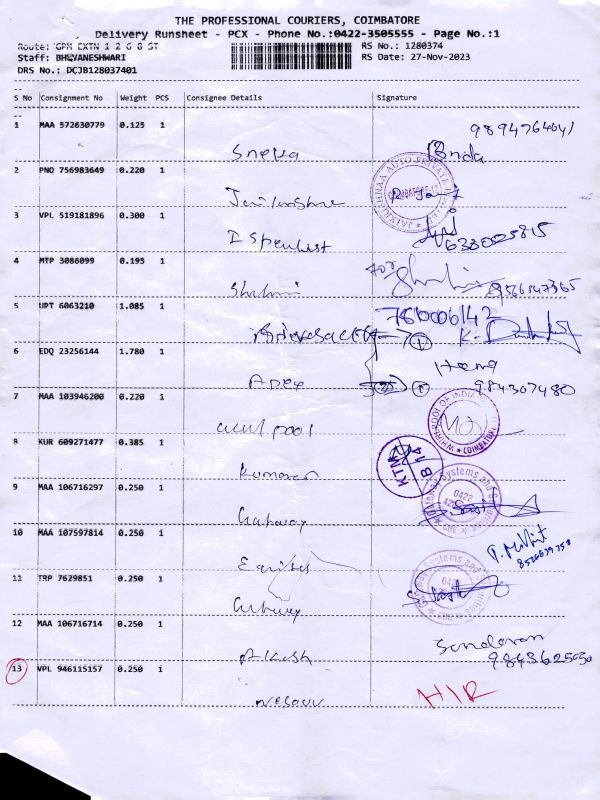 THE PROFESSIONAL COURIERS, COIMBATORE
Delivery Runsheet - PCX - Phone No.:0422-3505555 - Page No.:1
Route: GPM EXTN 1 2 6 8 ST
RS No.: 1280374
Staff: BHUVANESHWARI
RS Date: 27-Nov-2023
DRS No.: DCJB128037401
S No Consignment No Weight PCS Consignee Details Signature
9894764041
1 MAA 572630779 0.125 1
Sneka
2 PNQ 756983649 0.220 1
JAIKRISHNAA AUTO PRIVATE LIMITED
3 VPL 519181896 0.300 1
633005815
4 MTP 3086099 0.195 1
for
Shalini
9566147365
5 UPT 6063210 1.085 1
760006142
K.
6 EDQ 23256144 1.780 1
Hema
Apex
984307480
7 MAA 103946200 0.220 1
WHIRLPOOL OF INDIA
COIMBATORE
pool
8 KUR 609271477 0.385 1
KTM
B 14
Kumaran
9 MAA 106716297 0.250 1
Gateway Systems and
0422
CBE
Gateway
10 MAA 107597814 0.250 1
Equitas
11 TRP 7629851 0.250 1
Gateway
12 MAA 106716714 0.250 1
Sundaran
Akash
9843625030
13 VPL 946115157 0.250 1
HIR